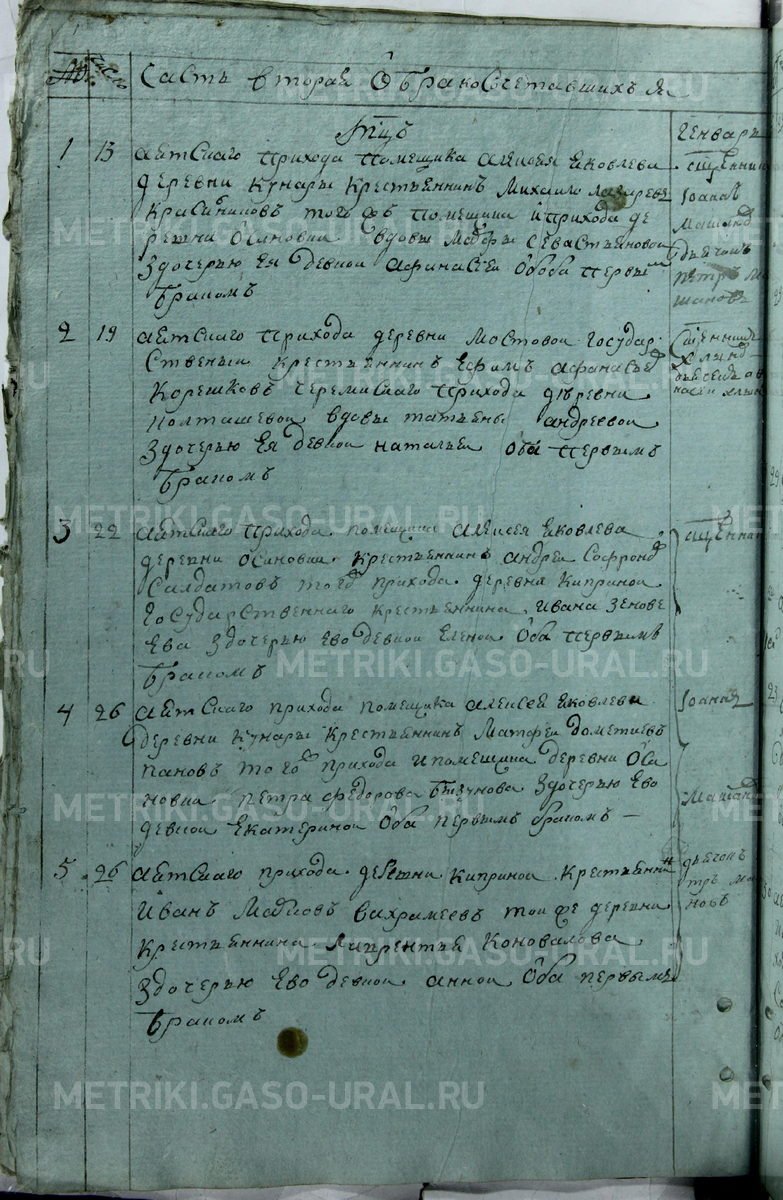 № число Часть вторая О бракосочетавшихъся
1 13 аятскаго прихода помещика алексея яковлева
деревни кунары крестьяннинъ михаило лазаревъ
красилниковъ того жъ помещика и прихода де
ревни осиновки вдовы марфы севастьяновой
здочерью ея девкой афанасьей оба первы
бракомъ
генваря
щенник
Iоаннъ
дьячокъ
петръ
2 19 аятскаго прихода деревни мостовой государ
ственный крестьяннинъ ефимъ афанасьев
корешковъ черемискаго прихода деревни
колташевой вдовы татьяны андреевой
здочерью ея девкой натальей оба первымъ
бракомъ
3 22 аятскаго прихода помещика алексея яковлева
деревни осиновки крестьяннинъ андрей софронов
салдатовъ того прихода деревня киприной
государственнаго крестьяннина ивана зенове
ева здочерью ево девкой еленой оба первымъ
бракомъ
щенник
4 26 аятскаго прихода помещика алексея яковлева
деревни кунары крестьяннинъ матфей дометиевъ
пановъ того прихода и помещика деревни оси
новки петра федорова бызунова здочерью ево
девкой екатериной оба первымъ бракомъ —
Iоаннъ
5 26 аятскаго прихода деревни киприной крестьяннин
иванъ вахрамеевъ той же деревни
крестьяннина лаврентья коновалова
здочерью ево девкой анной оба первымъ
бракомъ
дьячокъ
METRIKI.GASO-URAL.RU